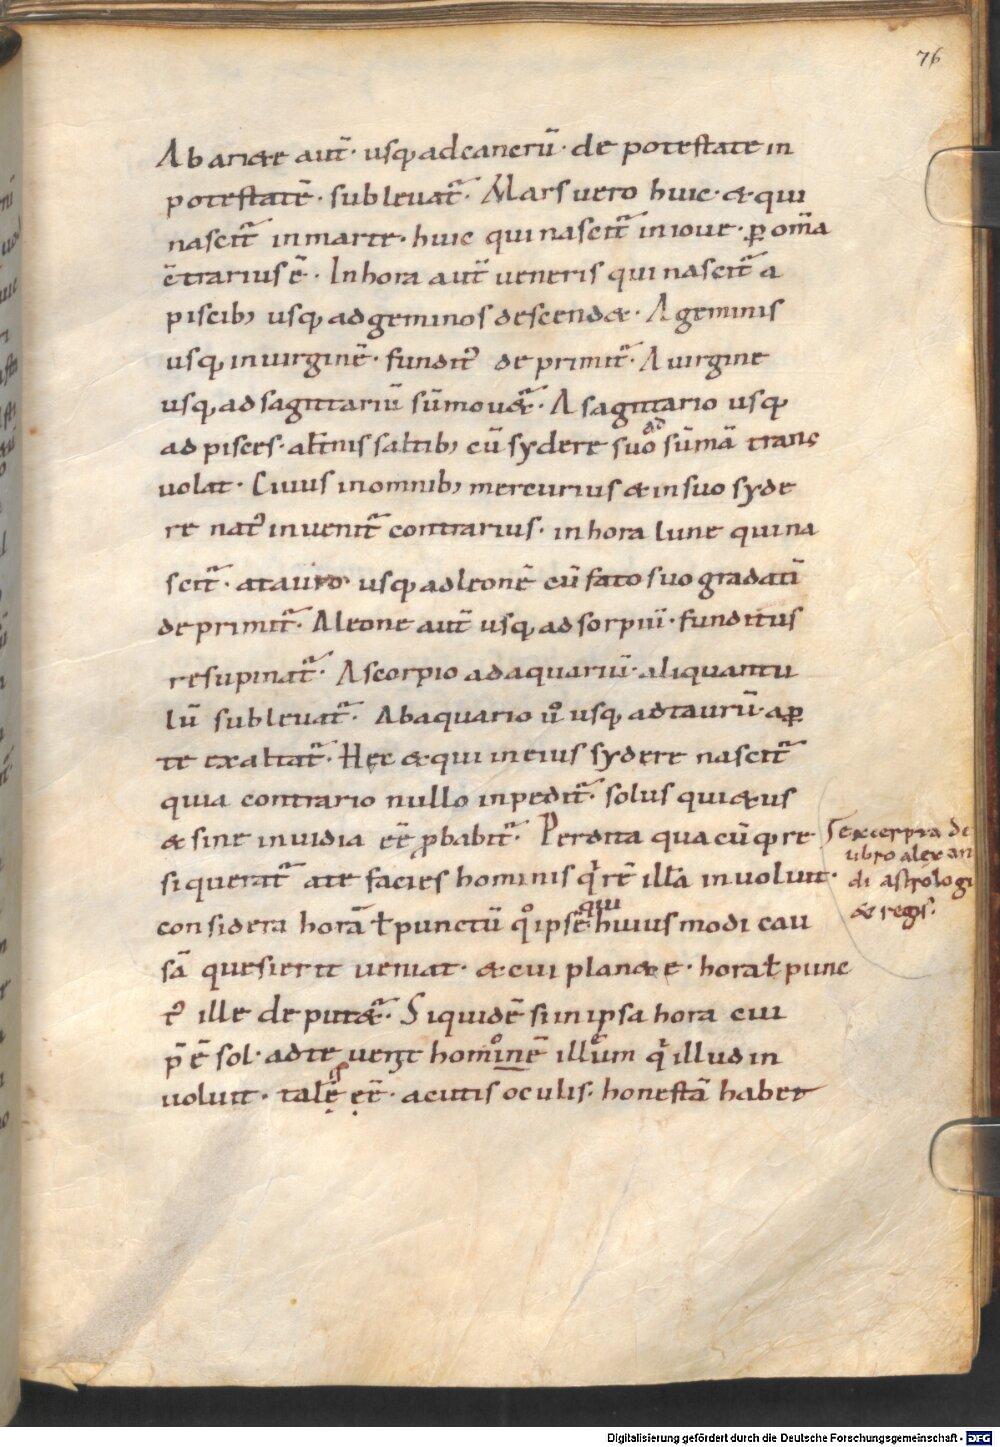 76
Ab ariete aut̄· usq; ad cancrū· de potestate in
potestatē· sublevat̄· Mars vero huic· & qui
nascit̄ in marte· huic qui nascit̄ in iove· ꝑ om̄a
c̄trarius ē· In hora aut̄ veneris qui nascit̄ a
piscib; usq; ad geminos descend&· A geminis
usq; in virginē· fundit᷒ deprimit̄· A virgine
usq; ad sagittariū sūmov&̄· A sagittario usq;
ad pisces· alt̄nis saltib; cū sydere suo ad sūmā trans
volat· Cuius in omnib; mercurius & in suo syde
re nat᷒ invenit̄ contrarius· in hora lune qui na
scit̄· a tauro· usq; ad leonē cū fato suo gradatī
deprimit̄· A leone aut̄ usq; ad scorpiū· funditus
resupinat̄· A scorpio ad aquariū· aliquantu
lū sublevat̄· Ab aquario ů usq; ad taurū· aꝑ
te exaltat̄· Hęc & qui in eius sydere nascit̄
quia contrario nullo inpedit̄· solus qui&us
& sine invidia eē ꝓbabit̄· Perdita quacūq; re
si querat̄ a te facies hominis q̇ rē illā involvit·
considera horā ł punctū q̊ ipsē qui huius modi cau
sā quesierit veniat· & cui plan&e· hora ł punc
t᷒ ille deput&̄· Siquidē si in ipsa hora cui
p̄ ē sol· ad te vener̄t hominē illum q̇ illud in
voluit· talē eē· acutis oculis· honestā habet
Excerpta de
libro alexan
dri astrologi
& regis·
Digitalisierung gefördert durch die Deutsche Forschungsgemeinschaft - DFG